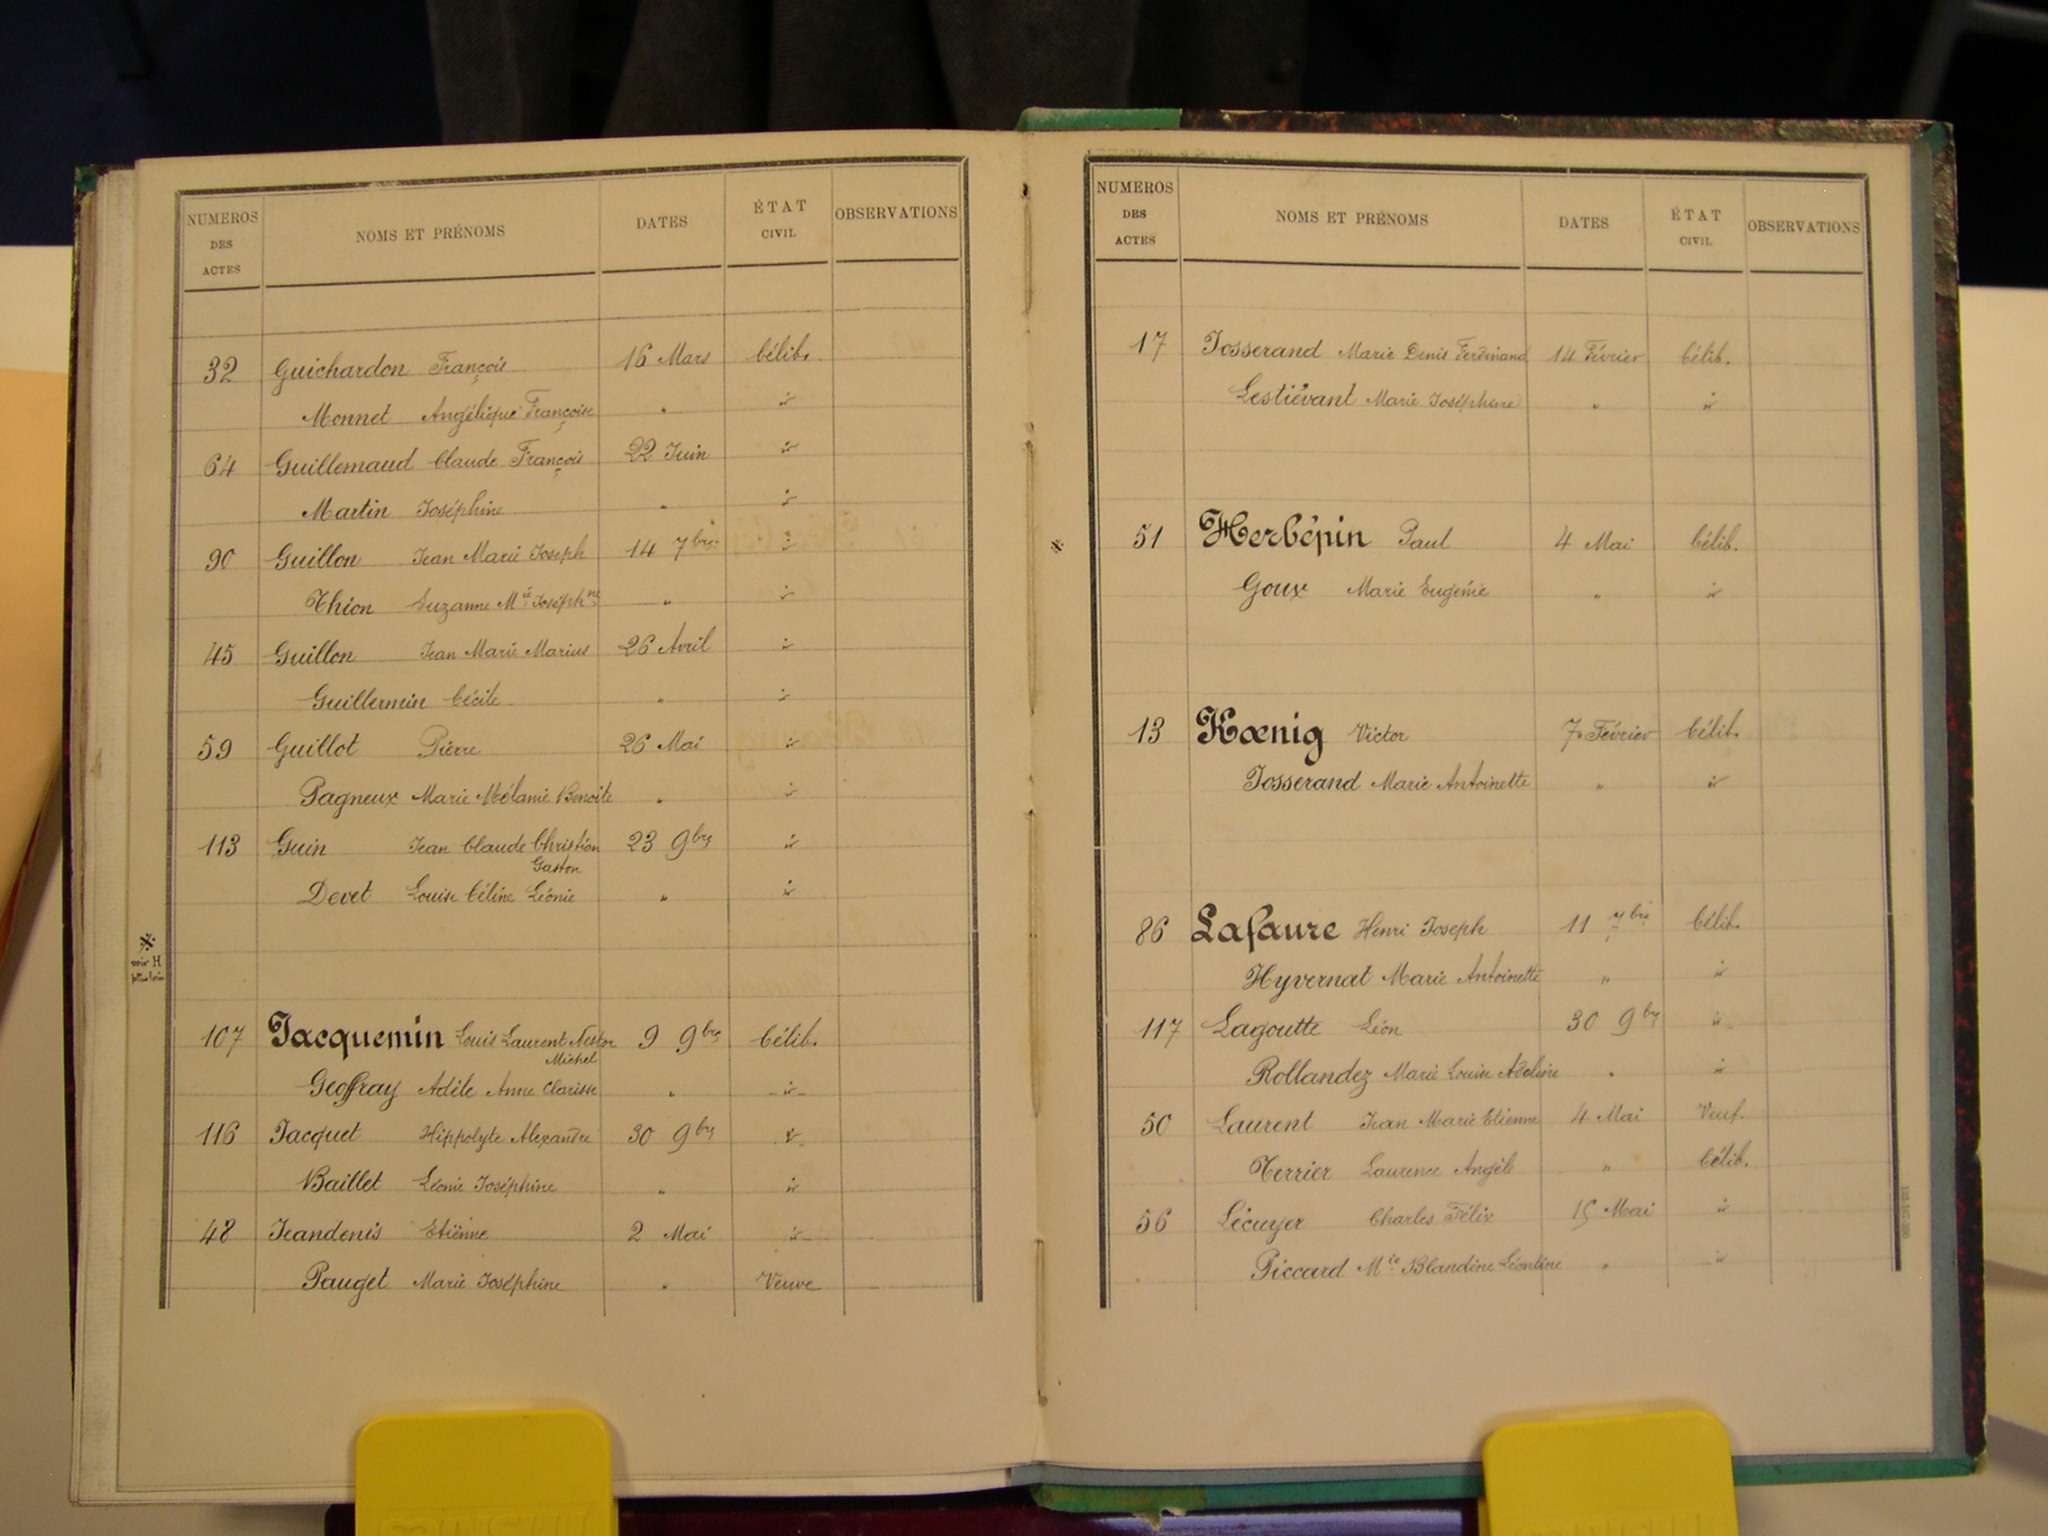 NUMEROS DES ACTES NOMS ET PRÉNOMS DATES ÉTAT CIVIL OBSERVATIONS
32 Guichardon François 16 Mars Célib.
Monnet Angélique Françoise " id
64 Guillemaud Claude François 22 Juin id
Martin Joséphine " id
90 Guillon Jean Marie Joseph 14 7bre id
Thion Suzanne Mie Joséphne " id
45 Guillon Jean Marie Marius 26 Avril id
Guillermin Cécile " id
59 Guillot Pierre 26 Mai id
Pagneux Marie Mélanie Benoite " id
113 Guin Jean Claude Christian 23 9bre id
Gaston
Devet Louise Céline Léonie " id
※
voir H
plus loin
107 Jacquemin Louis Laurent Nestor 9 9bre Célib.
Michel
Geoffray Adèle Anne Clarisse " id
116 Jacquet Hippolyte Alexandre 30 9bre id
Baillet Léonie Joséphine " id
48 Jeandenis Etienne 2 Mai id
Pauget Marie Joséphine " Veuve
NUMEROS DES ACTES NOMS ET PRÉNOMS DATES ÉTAT CIVIL OBSERVATIONS
17 Josserand Marie Denis Ferdinand 14 Février Célib.
Lestiévant Marie Joséphine " id
※ 51 Herbépin Paul 4 Mai Célib.
Goux Marie Eugénie " id
13 Kœnig Victor 7 Février Célib.
Josserand Marie Antoinette " id
86 Lafaure Henri Joseph 11 7bre Célib.
Hyvernat Marie Antoinette " id
117 Lagoutte Léon 30 9bre id
Rollandez Marie Louise Adeline " id
50 Laurent Jean Marie Etienne 4 Mai Veuf.
Terrier Laurence Angèle " Célib.
56 Lécuyer Charles Félix 15 Mai id
Piccard Mie Blandine Léontine " id